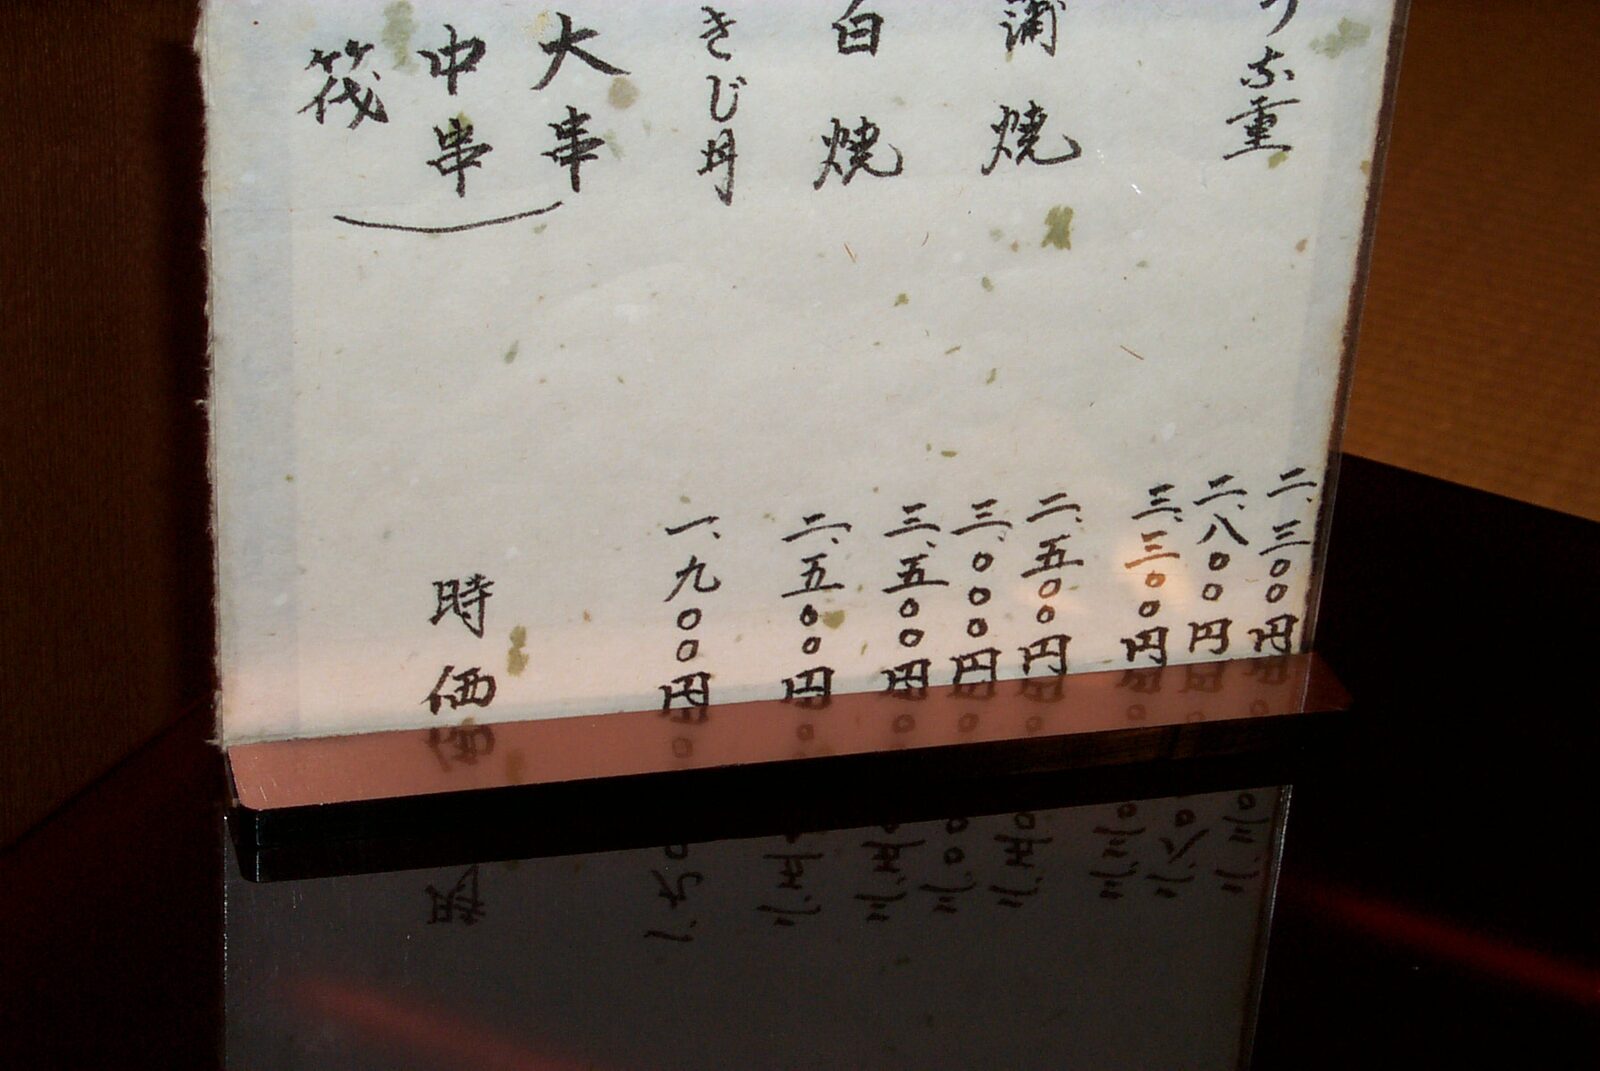 うな重
二、三〇〇円
二、八〇〇円
三、三〇〇円
蒲焼
二、五〇〇円
三、〇〇〇円
三、五〇〇円
白焼
二、五〇〇円
きじ丼
一、九〇〇円
大串
中串
筏
時価